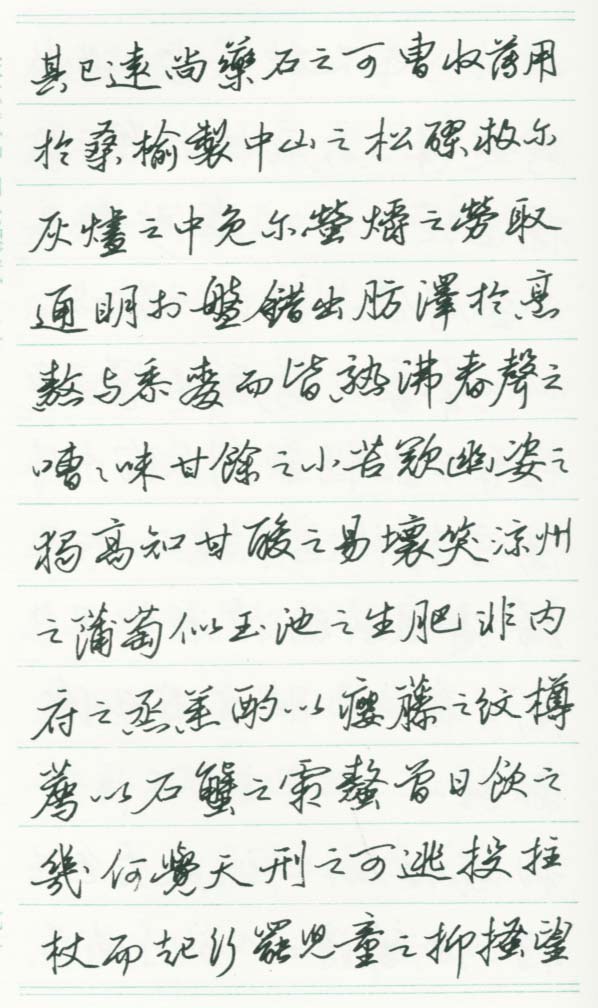 其已遠尚藥石之可曹收薄用
於桑榆製中山之松醪救尔
灰燼之中免尔螢爝之勞取
通明於盤錯出肪澤於烹
熬与黍麥而皆熟沸春聲之
嘈〻味甘餘之小苦歎幽姿之
獨高知甘酸之易壞笑涼州
之蒲萄似玉池之生肥非内
府之蒸羔酌以癭藤之紋樽
薦以石蟹之霜螯曾日飲之
幾何覺天刑之可逃投拄
杖而起行罷児童之抑搔望